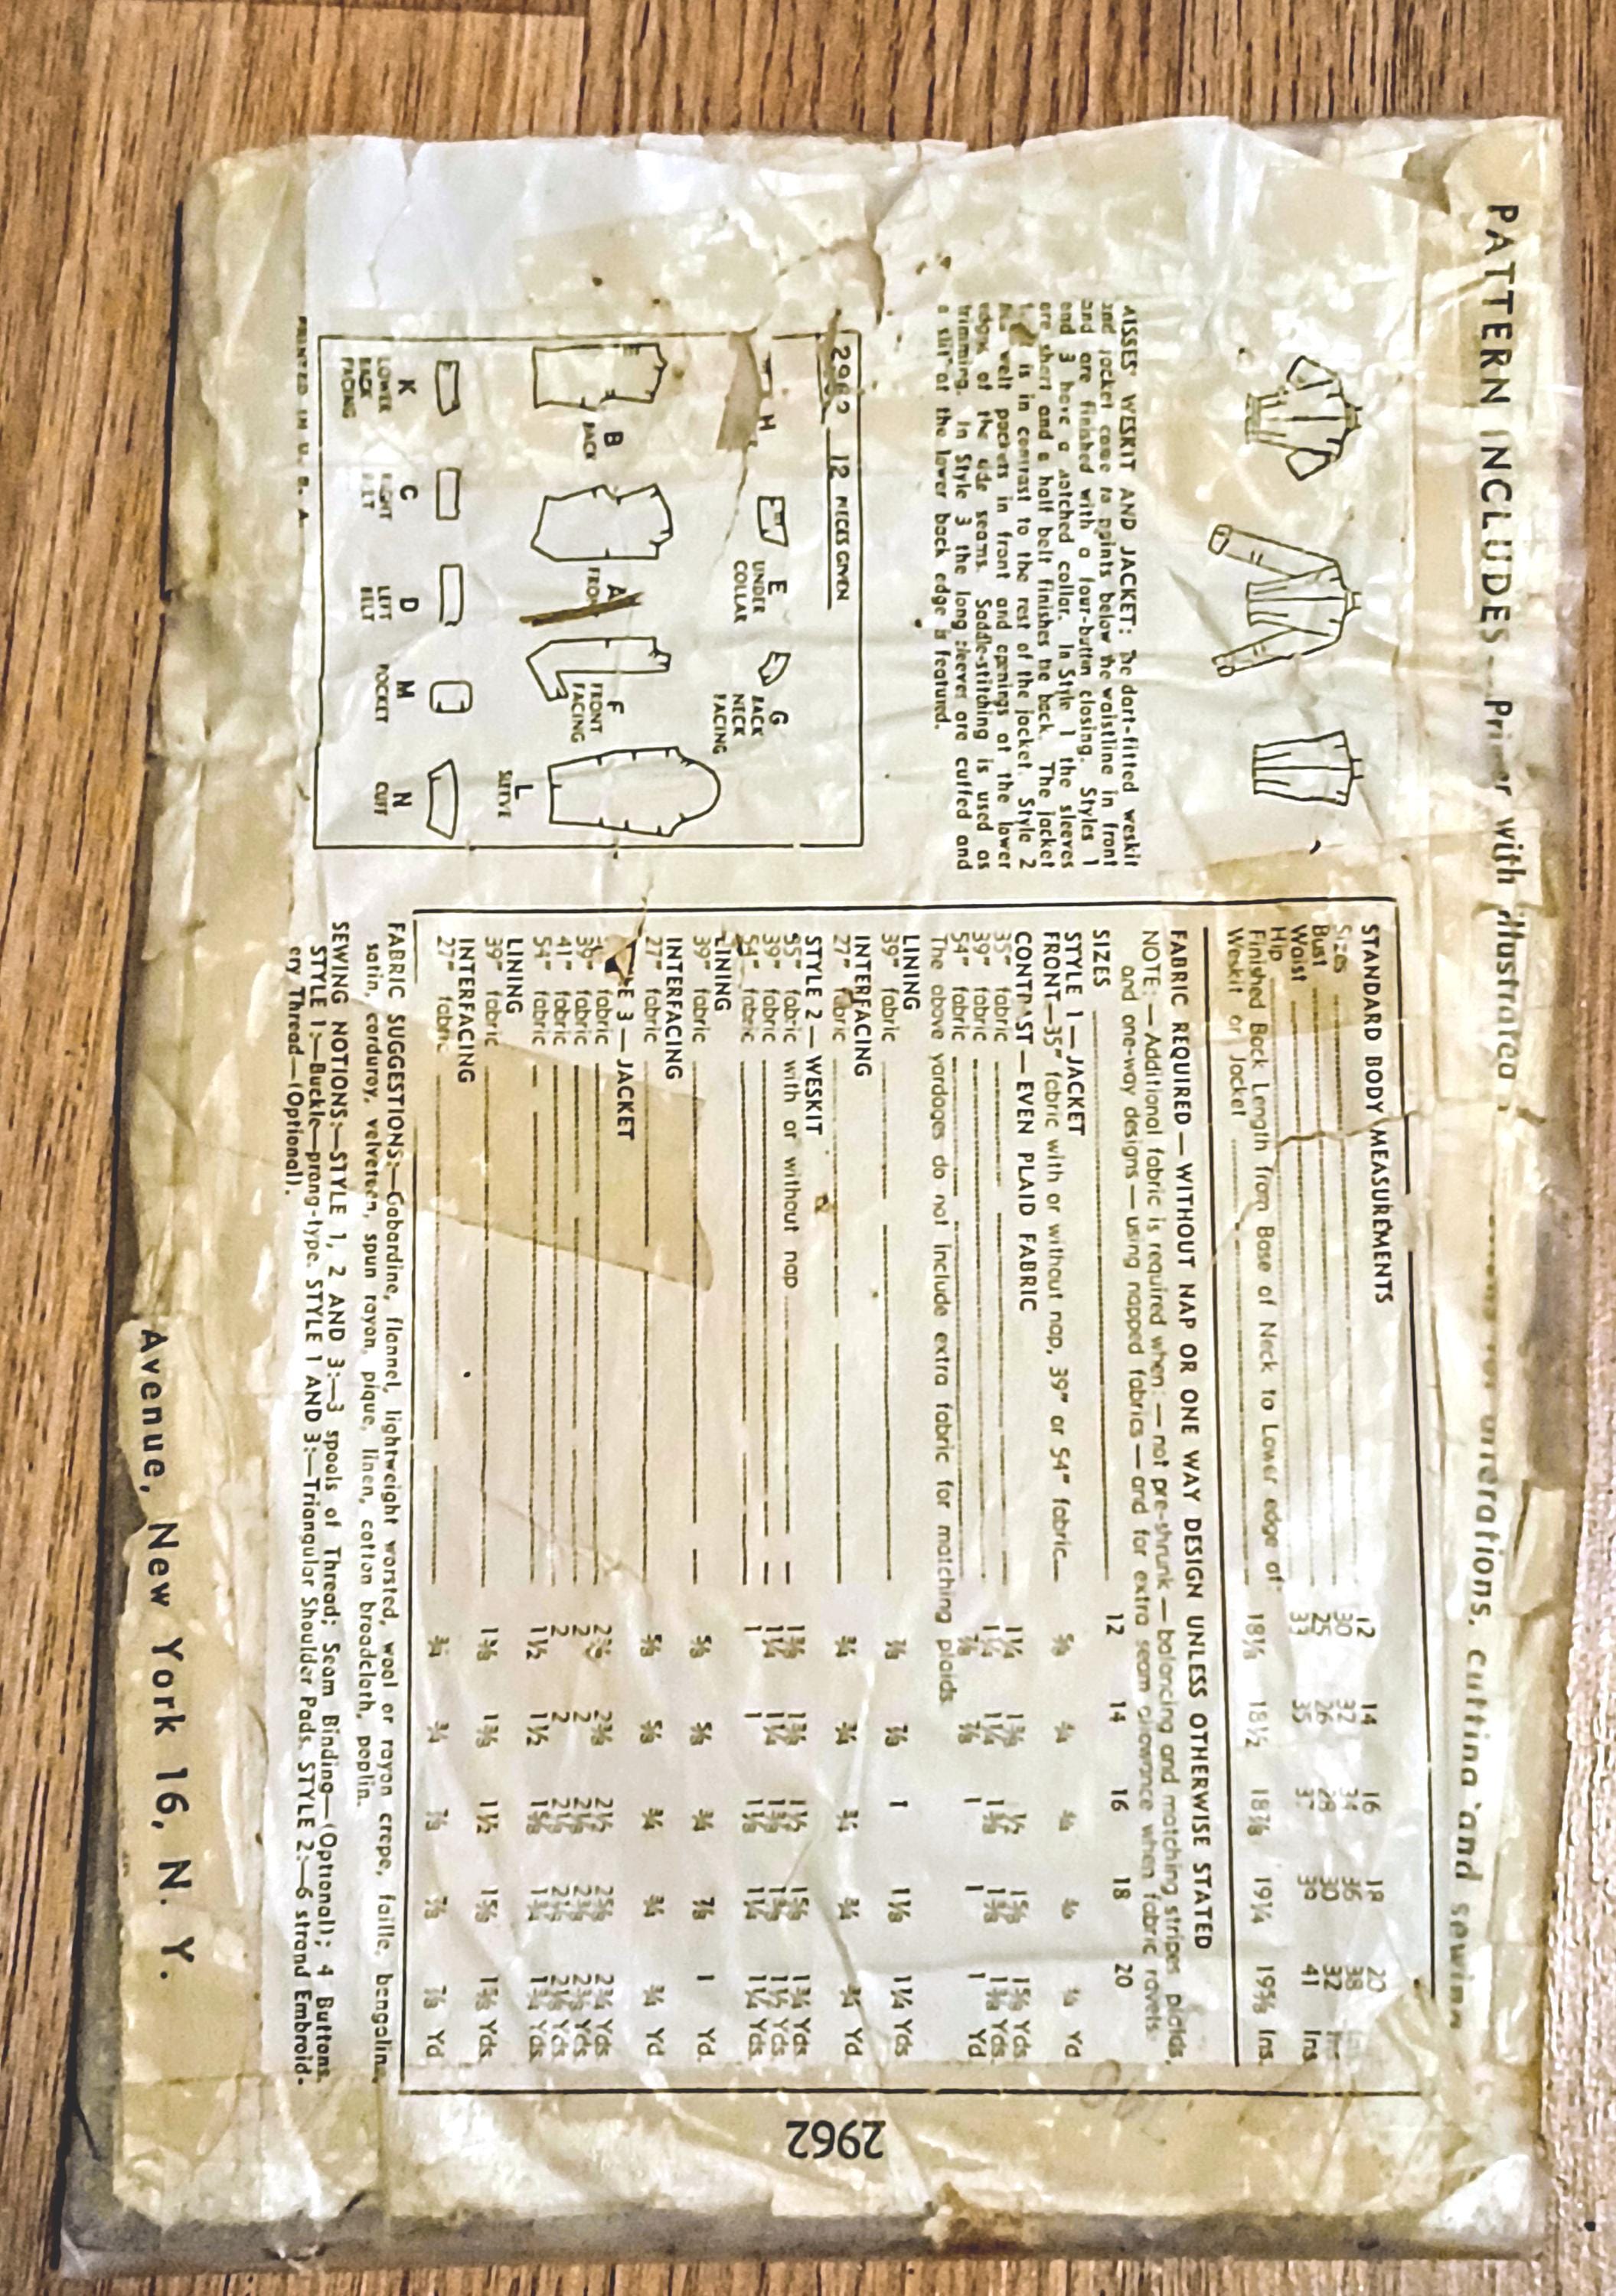 PATTERN INCLUDES — Primer with illustrated
alterations, cutting and sewing
MISSES' WESKIT AND JACKET: The dart-fitted weskit
and jacket come to points below the waistline in front
and are finished with a four-button closing. Styles 1
and 3 have a notched collar. In Style 1 the sleeves
are short and a half belt finishes the back. The jacket
is in contrast to the rest of the jacket. Style 2
has welt pockets in front and openings at the lower
edges of the side seams. Saddle-stitching is used as
trimming. In Style 3 the long sleeves are cuffed and
a slit at the lower back edge is featured.
2962 12 PIECES GIVEN
H
E
UNDER
COLLAR
G
BACK
NECK
FACING
B
BACK
A
FRONT
F
FRONT
FACING
L
SLEEVE
K
LOWER
BACK
FACING
C
RIGHT
BELT
D
LEFT
BELT
M
POCKET
N
CUFF
PRINTED IN U. S. A.
STANDARD BODY MEASUREMENTS
Sizes 12 14 16 18 20
Bust 30 32 34 36 38
Waist 25 26 28 30 32
Hip 33 35 37 39 41 Ins.
Finished Back Length from Base of Neck to Lower edge of
Weskit or Jacket 18⅛ 18½ 18⅞ 19¼ 19⅝ Ins.
FABRIC REQUIRED — WITHOUT NAP OR ONE WAY DESIGN UNLESS OTHERWISE STATED
NOTE: — Additional fabric is required when: — not pre-shrunk — balancing and matching stripes, plaids,
and one-way designs — using napped fabrics — and for extra seam allowance when fabric ravels.
SIZES 12 14 16 18 20
STYLE 1 — JACKET
FRONT—35" fabric with or without nap, 39" or 54" fabric ⅝ Yd.
CONTRAST — EVEN PLAID FABRIC
35" fabric 1¼ 1⅜ 1½ 1⅝ 1⅝ Yds.
39" fabric 1¼ 1¼ 1⅜ 1⅜ 1⅜ Yds.
54" fabric ⅞ ⅞ 1 1 1 Yd.
The above yardages do not include extra fabric for matching plaids.
LINING
39" fabric ⅞ ⅞ 1 1⅛ 1¼ Yds.
INTERFACING
27" fabric ¾ ¾ ¾ ¾ ¾ Yd.
STYLE 2 — WESKIT
35" fabric with or without nap 1⅜ 1⅜ 1½ 1⅝ 1¾ Yds.
39" fabric 1¼ 1¼ 1⅜ 1⅜ 1½ Yds.
54" fabric 1 1 1⅛ 1¼ 1¼ Yds.
LINING
39" fabric ⅝ ⅝ ¾ ⅞ 1 Yd.
INTERFACING
27" fabric ⅝ ⅝ ¾ ¾ ¾ Yd.
3 — JACKET
fabric 2⅜ 2⅜ 2½ 2⅝ 2¾ Yds.
39" fabric 2 2 Yds.
41" fabric 2 2 2⅛ 2⅛ 2⅛ Yds.
54" fabric 1½ 1½ 1⅝ 1¾ 1¾ Yds.
LINING
39" fabric 1⅜ 1⅜ 1½ 1⅝ 1⅝ Yds.
INTERFACING
27" fabric ¾ ¾ ⅞ ⅞ ⅞ Yd.
FABRIC SUGGESTIONS:—Gabardine, flannel, lightweight worsted, wool or rayon crepe, faille, bengaline,
satin, corduroy, velveteen, spun rayon, pique, linen, cotton broadcloth, poplin.
SEWING NOTIONS:—STYLE 1, 2 AND 3:—3 spools of Thread; Seam Binding—(Optional); 4 Buttons.
STYLE 1:—Buckle—prong-type. STYLE 1 AND 3:—Triangular Shoulder Pads. STYLE 2:—6 strand Embroid-
ery Thread—(Optional).
2962
Avenue, New York 16, N. Y.